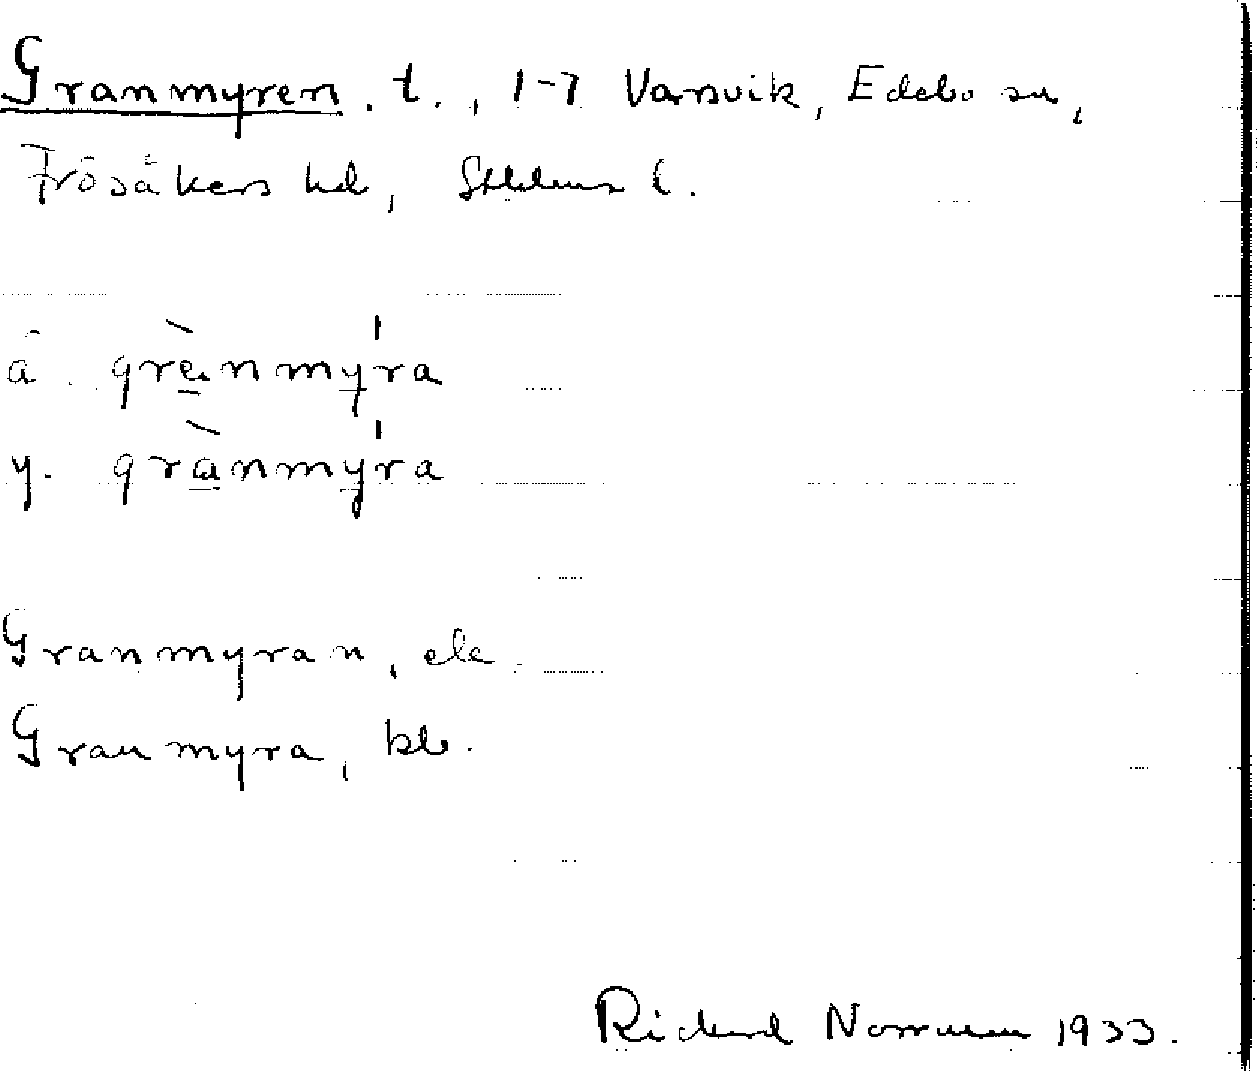 Granmyren. t., 1-7 Vansvik, Edebo sn,
Frösåkers hd, Sthlms l.
ä. grènmýra
y. grànmýra
Granmyran, ele.
Granmyra, kb.
Rickard Norrman 1933.